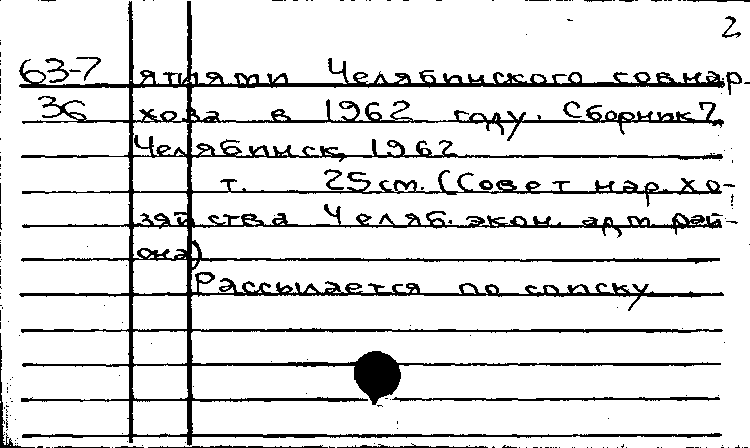 2
63-7 ятиями Челябинского совнар-
36 хоза в 1962 году. Сборник 7.
Челябинск, 1962
т. 25 см. (Совет нар. хо-
зяйства Челяб. экон. адм. рай-
она)
Рассылается по списку